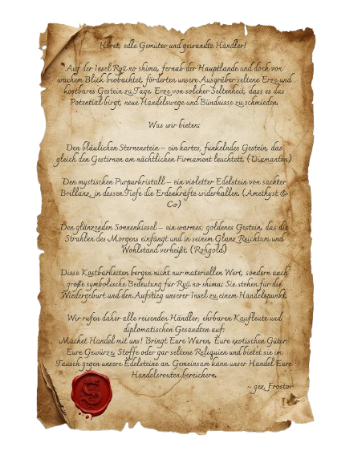 Höret, edle Gemüter und gewandte Händler!
Auf der Insel Ryū no shima, fernab der Hauptlande und doch von
wachem Blick beobachtet, förderten unsere Ausgräber seltene Erze und
kostbares Gestein zu Tage. Erze von solcher Seltenheit, dass es das
Potenzial birgt, neue Handelswege und Bündnisse zu schmieden.
Was wir bieten:
Den bläulichen Sternenstein – ein hartes, funkelndes Gestein, das
gleich den Gestirnen am nächtlichen Firmament leuchtet. (Diamanten)
Den mystischen Purpurkristall – ein violetter Edelstein von sachter
Brillanz, in dessen Tiefe die Erdenkräfte widerhallen. (Amethyst &
Co)
Den glänzenden Sonnenkiesel – ein warmes, goldenes Gestein, das die
Strahlen des Morgens einfängt und in seinem Glanz Reichtum und
Wohlstand verheißt. (Rohgold)
Diese Kostbarkeiten bergen nicht nur materiellen Wert, sondern auch
große symbolische Bedeutung für Ryū no shima: Sie stehen für die
Wiedergeburt und den Aufstieg unserer Insel zu einem Handelspunkt.
Wir rufen daher alle reisenden Händler, ehrbaren Kaufleute und
diplomatischen Gesandten auf:
Machet Handel mit uns! Bringt Eure Waren, Eure exotischen Güter,
Eure Gewürze, Stoffe oder gar seltene Reliquien und bietet sie im
Tausch gegen unsere Edelsteine an. Gemeinsam kann unser Handel Eure
Handelsrouten bereichern.
~ gez. Frostor
S